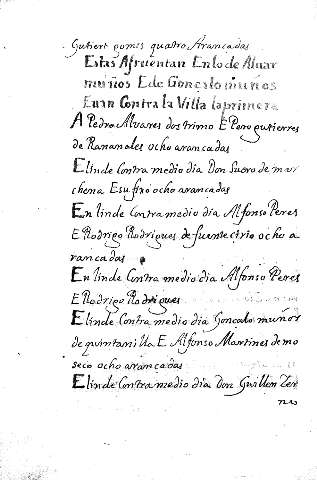 Gutierr gomes quatro Arancadas
Estas Afruentan Enlo de Aluar
muños E de Gonçalo muños
Euan Contra la Villa la primera
A Pedro Aluares dos trimo E Pero gutierres
de Rananales ocho arancadas
Elinde Contra medio dia Don Suero de mar
chena E su fixo ocho arancadas
En linde Contra medio dia Alfonso Peres
E Rodrigo Rodrigues de fuente cirio ocho a
rancadas
En linde Contra medio dia Alfonso Peres
E Rodrigo Rodrigues
Elinde Contra medio dia Gonçalo muños
de quintanilla E Alfonso Martines de mo
seco ocho arançadas
Elinde Contra medio dia Don Guillen